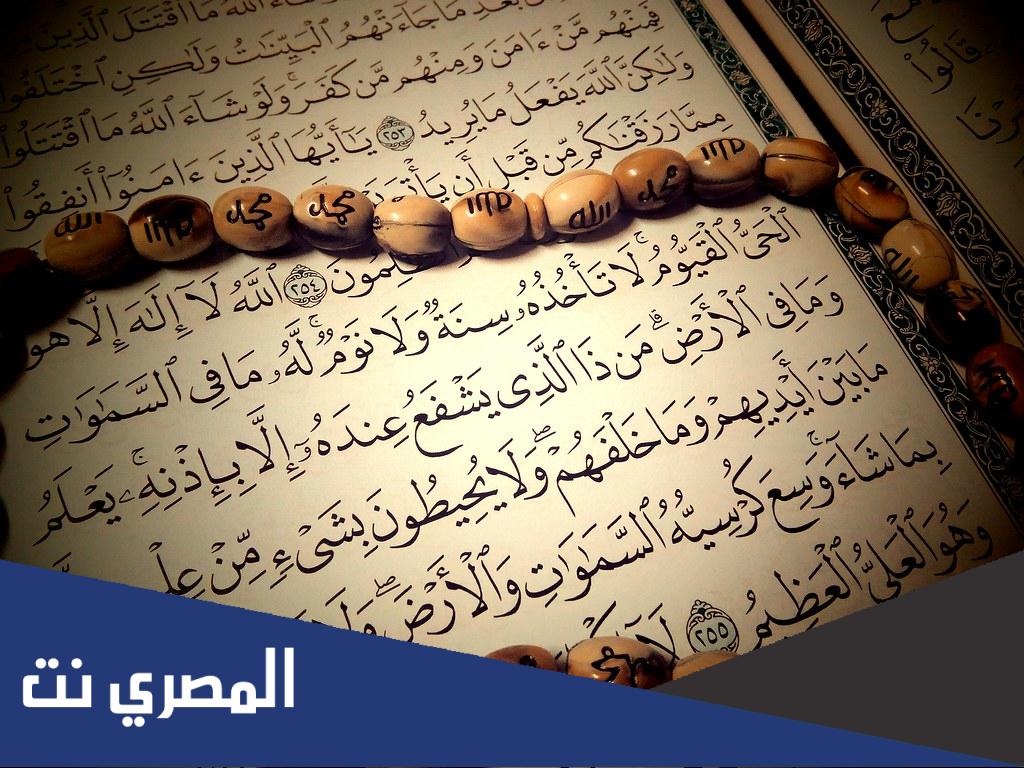 بَعْدِ مَا جَآءَتْهُمُ ٱلْبَيِّنَٰتُ وَلَٰكِنِ ٱخْتَلَفُوا۟
فَمِنْهُم مَّنْ ءَامَنَ وَمِنْهُم مَّن كَفَرَ ۚ وَلَوْ شَآءَ ٱللَّهُ مَا ٱقْتَتَلُوا۟
وَلَٰكِنَّ ٱللَّهَ يَفْعَلُ مَا يُرِيدُ ٢٥٣ يَٰٓأَيُّهَا ٱلَّذِينَ ءَامَنُوٓا۟ أَنفِقُوا۟
مِمَّا رَزَقْنَٰكُم مِّن قَبْلِ أَن يَأْتِىَ
ٱللَّهُ لَآ إِلَٰهَ إِلَّا هُوَ ٢٥٤
ٱلْحَىُّ ٱلْقَيُّومُ ۚ لَا تَأْخُذُهُۥ سِنَةٌ وَلَا نَوْمٌ ۚ لَّهُۥ مَا فِى ٱلسَّمَٰوَٰتِ
وَمَا فِى ٱلْأَرْضِ ۗ مَن ذَا ٱلَّذِى يَشْفَعُ عِندَهُۥٓ إِلَّا بِإِذْنِهِۦ ۚ يَعْلَمُ
مَا بَيْنَ أَيْدِيهِمْ وَمَا خَلْفَهُمْ ۖ وَلَا يُحِيطُونَ بِشَىْءٍ مِّنْ
بِمَا شَآءَ ۚ وَسِعَ كُرْسِيُّهُ ٱلسَّمَٰوَٰتِ وَٱلْأَرْضَ ۖ
وَهُوَ ٱلْعَلِىُّ ٱلْعَظِيمُ ٢٥٥
قَالُوا۟
الله
محمد
محمد
الله
محمد
الله
المصري نت